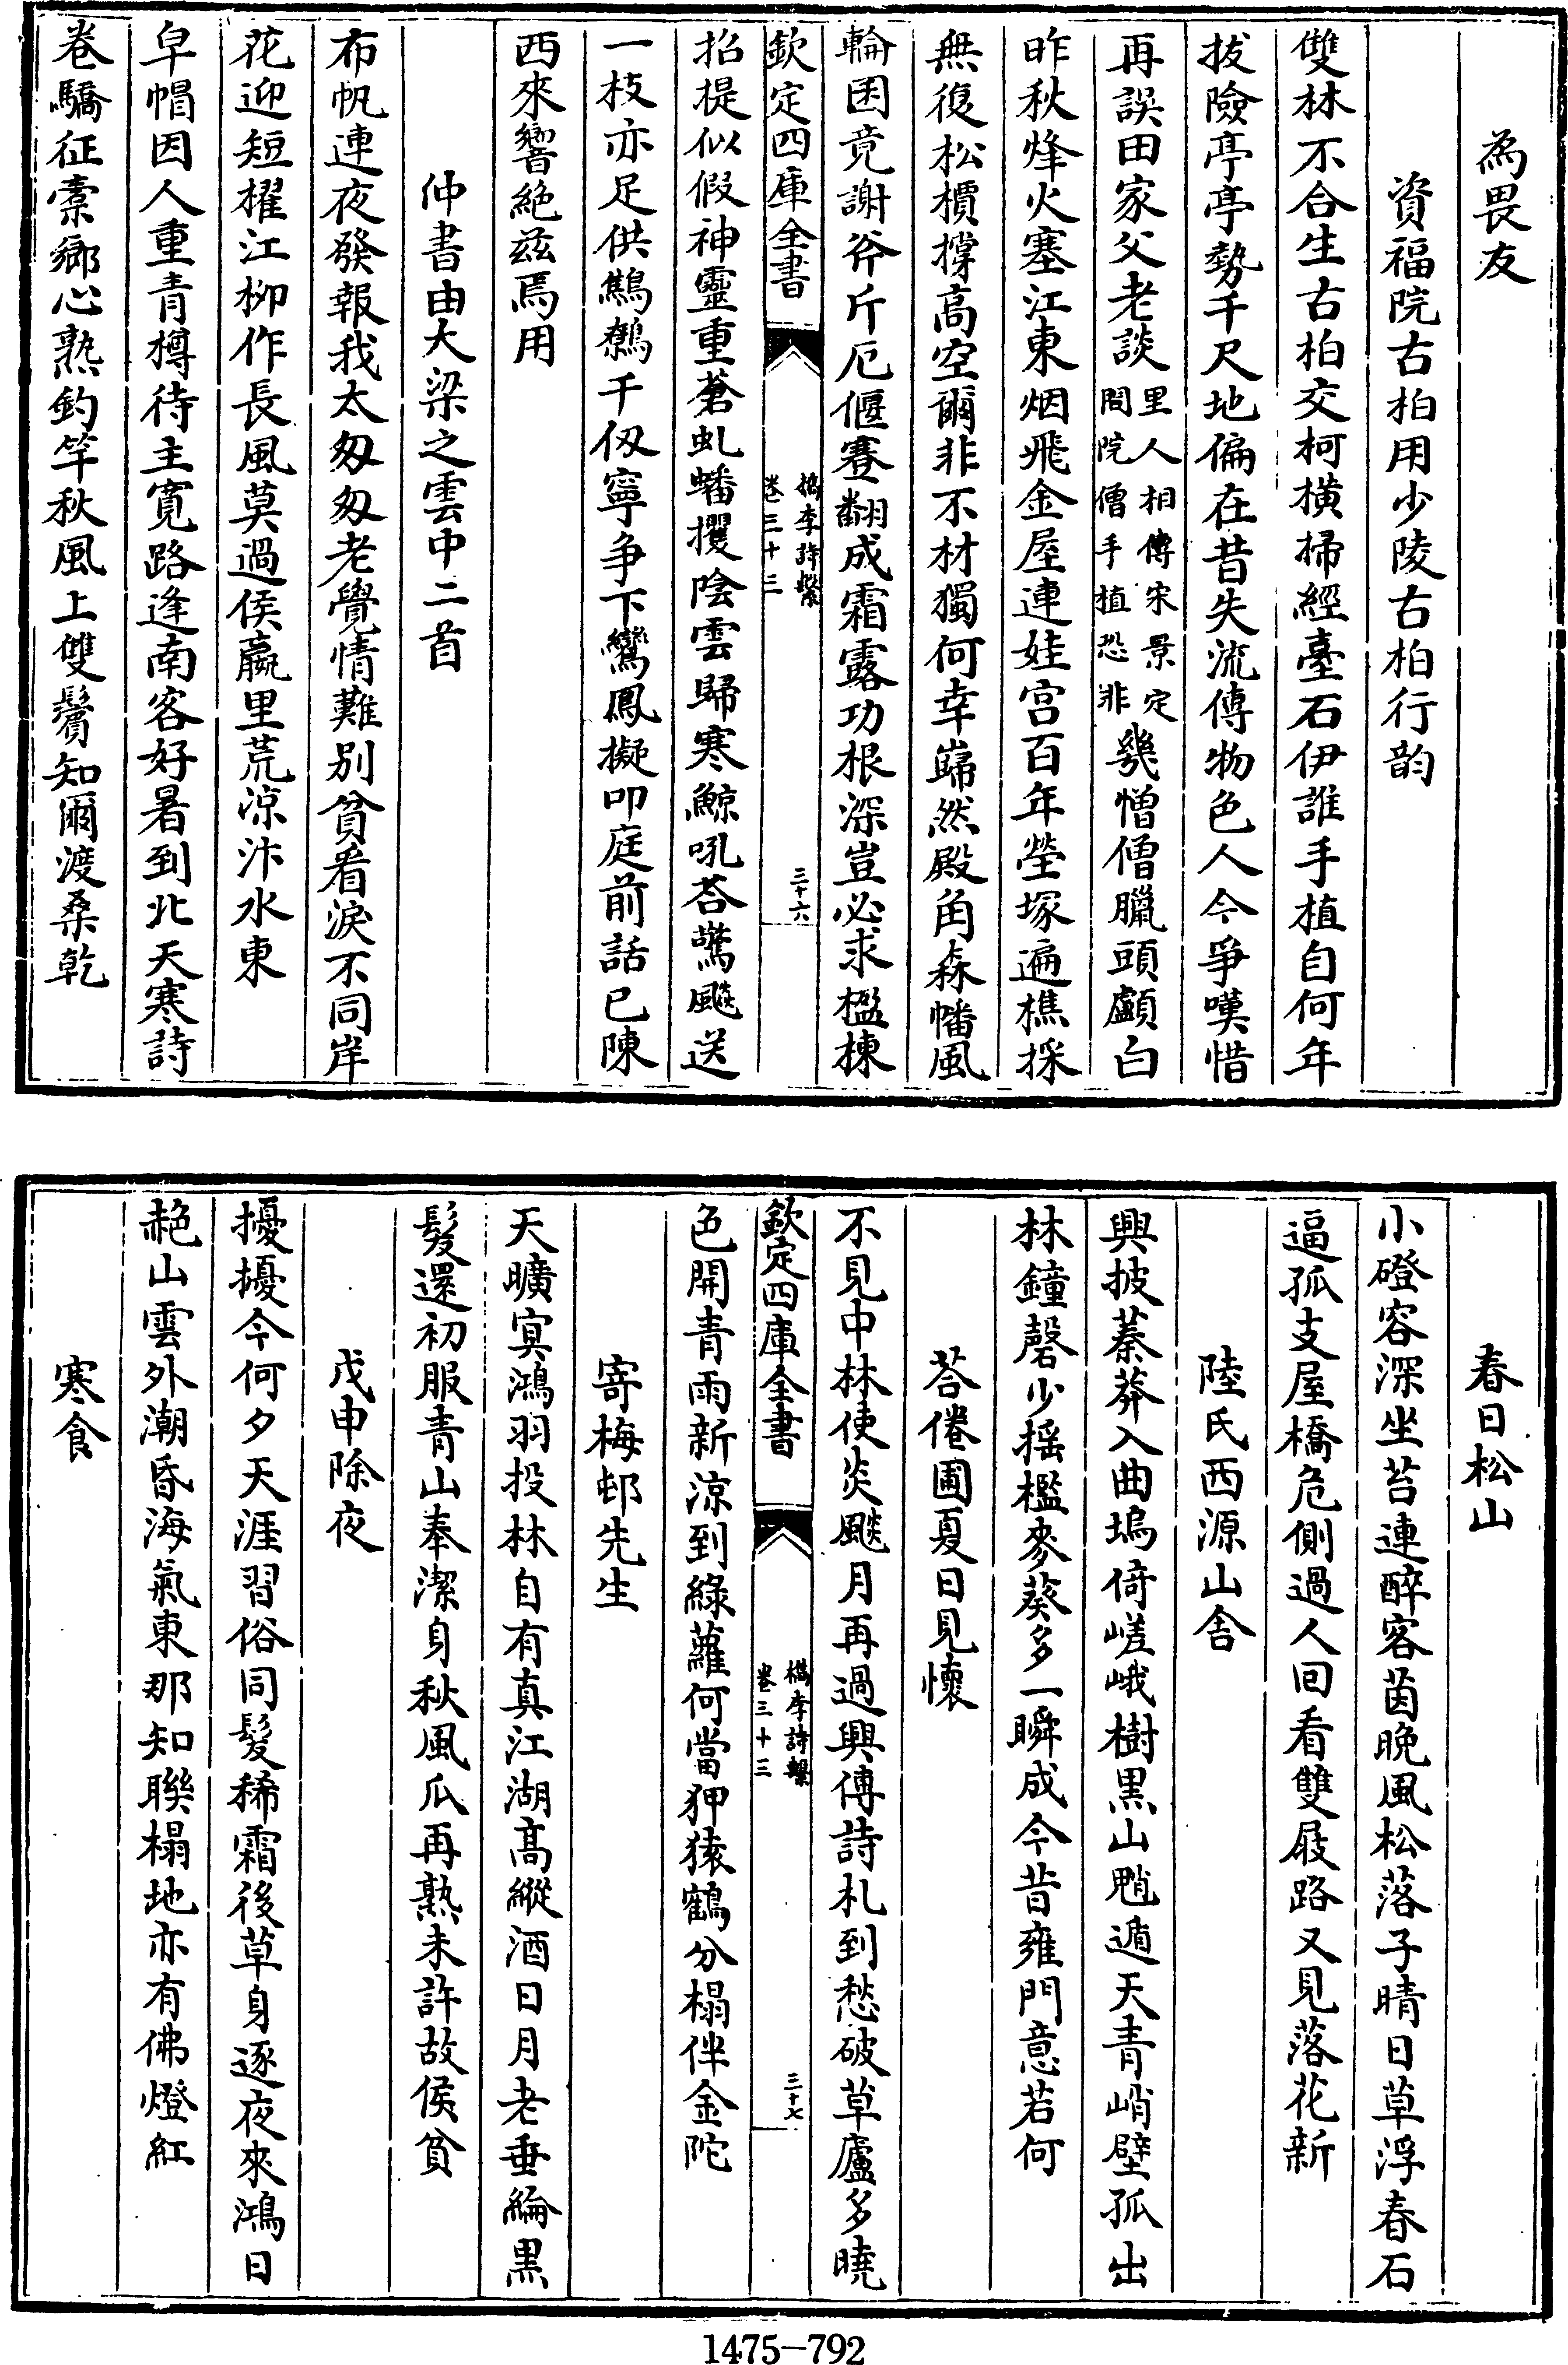 為畏友
資福院古柏用少陵古柏行韵
雙林不合生古柏交柯横掃經臺石伊誰手植自何年
拔險亭亭勢千尺地偏在昔失流傳物色人今爭嘆惜
再誤田家父老談里人相傳宋景定間院僧手植恐非幾憎僧臘頭顱白
昨秋烽火塞江東烟飛金屋連娃宫百年塋塚遍樵採
無復松檟撑高空爾非不材獨何幸巋然殿角森幡風
輪囷竟謝斧斤厄偃蹇翻成霜露功根深豈必求楹棟
欽定四庫全書
檇李詩繫
卷三十三
三十六
招提似假神靈重蒼虬蟠攫陰雲歸寒鯨吼荅驚飈送
一枝亦足供鷦鷯千仭寧争下鸞鳳擬叩庭前話已陳
西來響絶兹焉用
仲書由大梁之雲中二首
布帆連夜發報我太匆匆老覺情難别貧看淚不同岸
花迎短櫂江柳作長風莫過侯嬴里荒凉汴水東
皁帽因人重青樽待主寛路逢南客好暑到北天寒詩
卷驕征橐鄉心熟釣竿秋風上雙鬢知爾渡桑乾
春日松山
小磴容深坐苔連醉客茵晚風松落子晴日草浮春石
逼孤支屋橋危側過人回看雙屐路又見落花新
陸氏西源山舍
興披蓁莽入曲塢倚嵯峨樹黒山魈遁天青峭壁孤出
林鐘磬少摇檻麥葵多一瞬成今昔雍門意若何
荅倦圃夏日見懷
不見中林使炎飈月再過興傳詩札到愁破草廬多曉
欽定四庫全書
檇李詩繫
卷三十三
三十七
色開青雨新凉到綠蘿何當狎猿鶴分榻伴金陀
寄梅邨先生
天曠寘鴻羽投林自有真江湖髙縱酒日月老垂綸黒
髮還初服青山奉潔身秋風瓜再熟未許故侯貧
戊申除夜
擾擾今何夕天涯習俗同髮稀霜後草身逐夜來鴻日
赩山雲外潮昏海氣東那知聯榻地亦有佛燈紅
寒食
1475-792